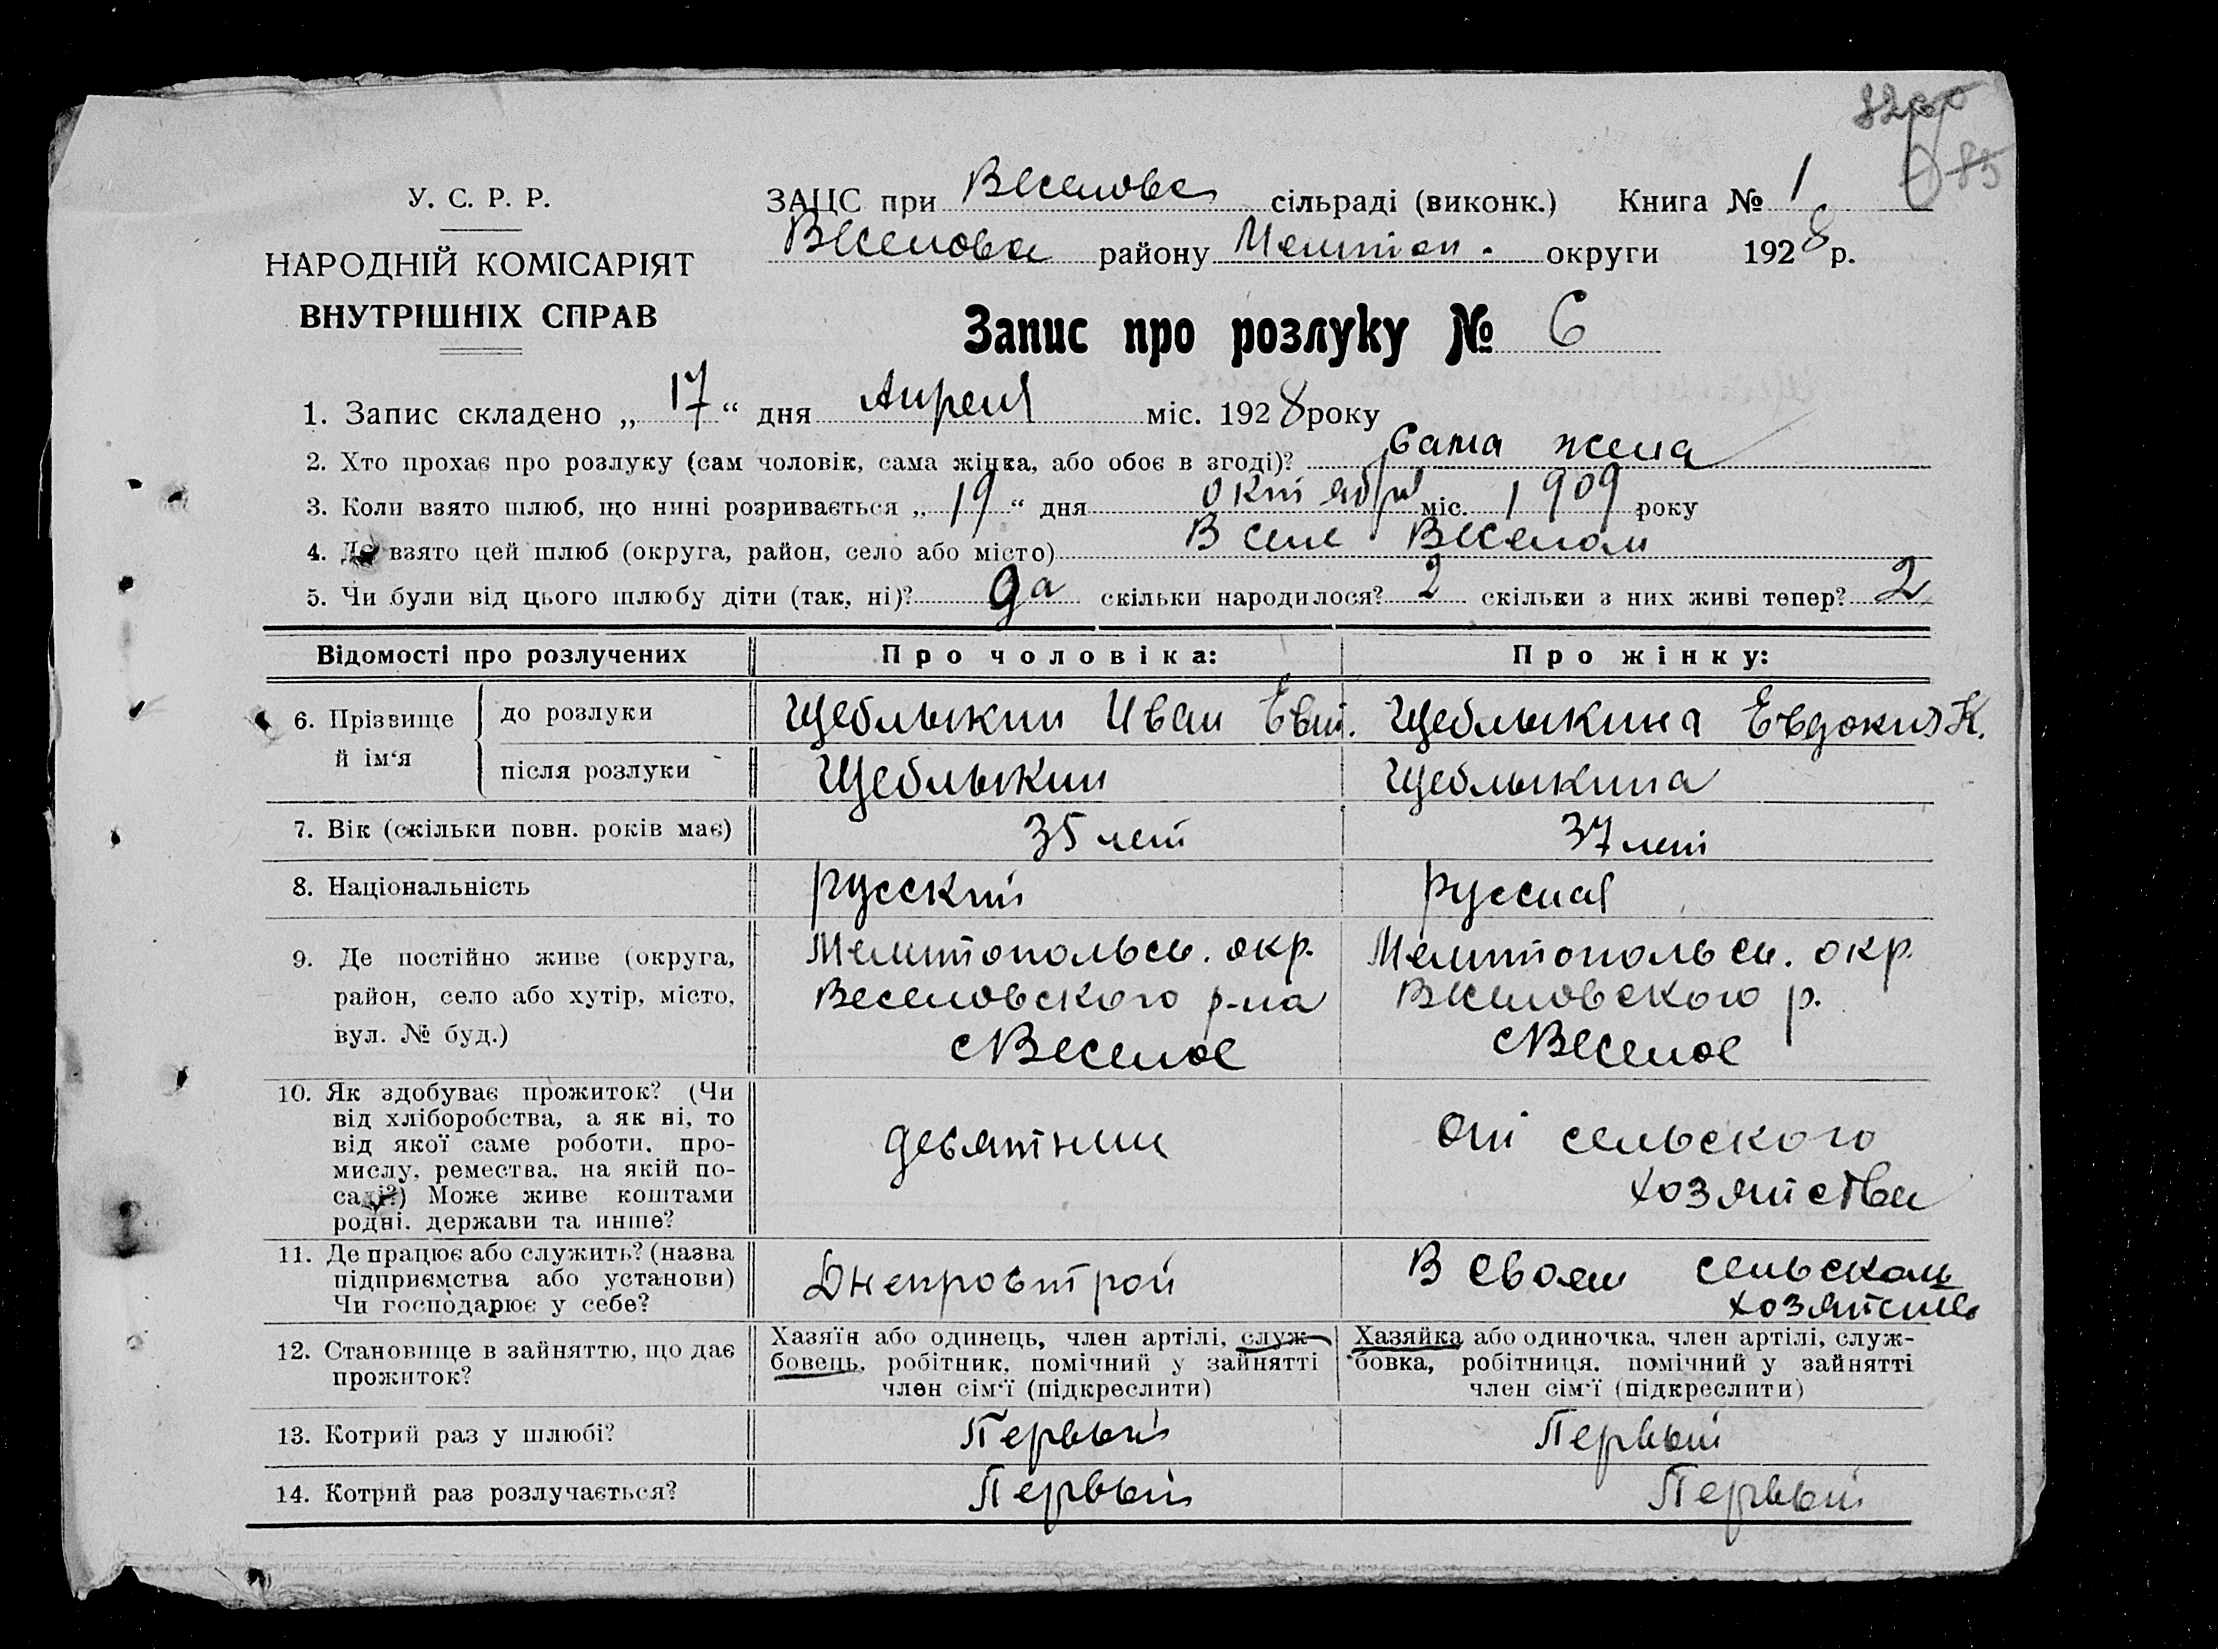 У. С. Р. Р.
НАРОДНІЙ КОМІСАРІЯТ
ВНУТРІШНІХ СПРАВ
ЗАЦС при Веселовс сільраді (виконк.) Книга № 1
Веселовс району Мелитоп. округи 1928 р.
Запис про розлуку № 6
1. Запис складено „ 17 “ дня Апреля міс. 1928 року
2. Хто прохає про розлуку (сам чоловік, сама жінка, або обоє в згоді)? Сама жена
3. Коли взято шлюб, що нині розривається „ 19 “ дня октября міс. 1909 року
4. Де взято цей шлюб (округа, район, село або місто) В селе Веселом
5. Чи були від цього шлюбу діти (так, ні)? да скільки народилося? 2 скільки з них живі тепер? 2
Відомості про розлучених Про чоловіка: Про жінку:
6. Прізвище й ім‘я
до розлуки Щеблыкин Иван Евт. Щеблыкина Евдокия К.
після розлуки Щеблыкин Щеблыкина
7. Вік (скільки повн. років має) 35 лет 37 лет
8. Національність русский русская
9. Де постійно живе (округа,
район, село або хутір, місто,
вул. № буд.)
Мелитопольск. окр.
Веселовского р-на
с Веселое
Мелитопольск. окр.
Веселовского р.
с Веселое
10. Як здобуває прожиток? (Чи
від хліборобства, а як ні, то
від якої саме роботи, про-
мислу, ремества, на якій по-
саді?) Може живе коштами
родні, держави та инше?
девятник
От сельского
хозяйства
11. Де працює або служить? (назва
підприємства або установи)
Чи господарює у себе?
Днепрострой
В своем сельском
хозяйстве
12. Становище в зайняттю, що дає
прожиток?
Хазяїн або одинець, член артілі, служ-
бовець, робітник, помічний у зайнятті
член сім‘ї (підкреслити)
Хазяйка або одиночка, член артілі, служ-
бовка, робітниця, помічний у зайнятті
член сім‘ї (підкреслити)
13. Котрий раз у шлюбі? Первый Первый
14. Котрий раз розлучається? Первый Первый